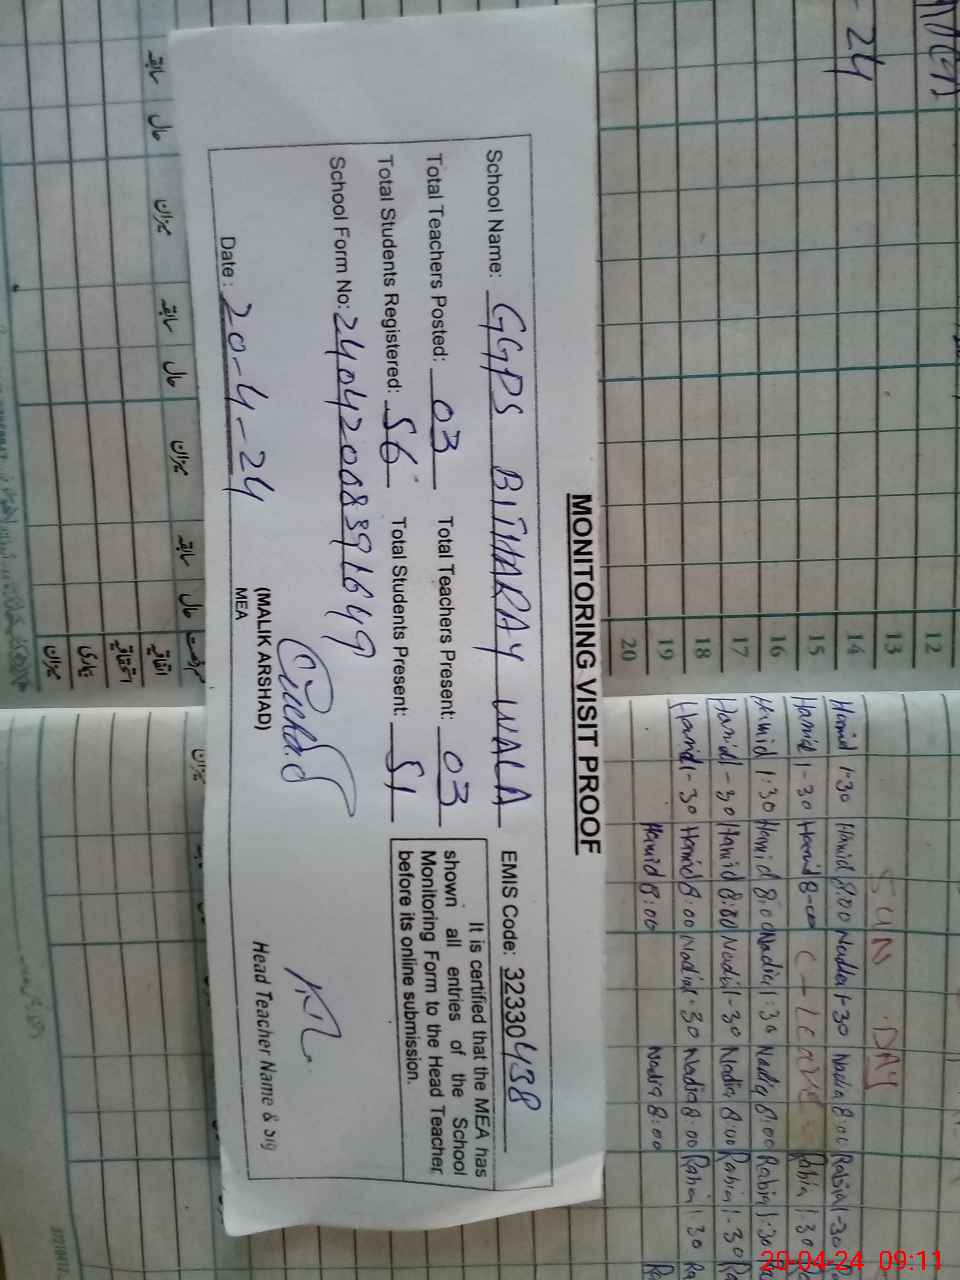 MONITORING VISIT PROOF
School Name: GGPS BIIHARAY WALA EMIS Code: 32330438
Total Teachers Posted: 03 Total Teachers Present: 03
Total Students Registered: 56 Total Students Present: 51
School Form No: 24042008391649
Date: 20-4-24
(MALIK ARSHAD)
MEA
It is certified that the MEA has
shown all entries of the School
Monitoring Form to the Head Teacher
before its online submission.
Head Teacher Name & sig
24
12
13
14
15
16
17
18
19
20
SUN . DAY
Hamid 1-30 Hamid 8:00 Nadia 1-30 Nadia 8:00 Rabia 1-30
Hamid 1-30 Hamid 8-00 Rabia 1-30
Hamid 1:30 Hamid 8:00 Nadia 1:30 Nadia 8:00 Rabia 1:30
Hamid 1-30 Hamid 8:00 Nadia 1-30 Nadia 8:00 Rabia 1-30
Hamid 1-30 Hamid 8:00 Nadia 1-30 Nadia 8:00 Rabia 1:30
Hamid 8:00 Nadia 8:00
سابقہ حال میزان سابقہ حال میزان سابقہ حال
اتفاقیہ
استحقاقیہ
بیماری
میزان
20-04-24 09:11